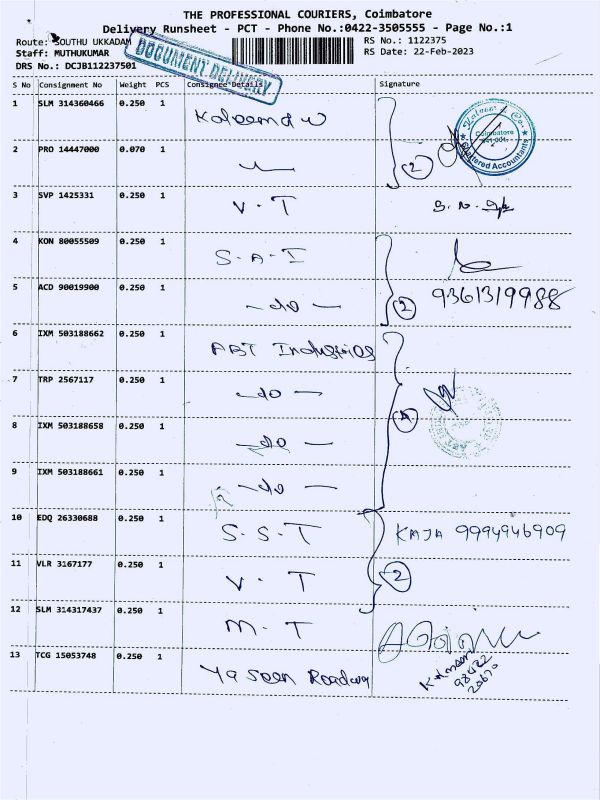 THE PROFESSIONAL COURIERS, Coimbatore
Delivery Runsheet - PCT - Phone No.:0422-3505555 - Page No.:1
Route: SOUTHU UKKADAM
RS No.: 1122375
Staff: MUTHUKUMAR
RS Date: 22-Feb-2023
DRS No.: DCJB112237501
DOCUMENT DELIVERY
S No Consignment No Weight PCS Consignee Details Signature
1 SLM 314360466 0.250 1
Coimbatore
Chartered Accountants
2 PRO 14447000 0.070 1 2
3 SVP 1425331 0.250 1 V. T
4 KON 80055509 0.250 1 S. A. I
5 ACD 90019900 0.250 1 -do- 2 9361319988
6 IXM 503188662 0.250 1 ABT Industries
7 TRP 2567117 0.250 1 -do-
8 IXM 503188658 0.250 1 -do- 4
9 IXM 503188661 0.250 1 -do-
10 EDQ 26330688 0.250 1 S. S. T KAJA 9994946909
11 VLR 3167177 0.250 1 V. T 2
12 SLM 314317437 0.250 1 M. T
13 TCG 15053748 0.250 1 Yaseen